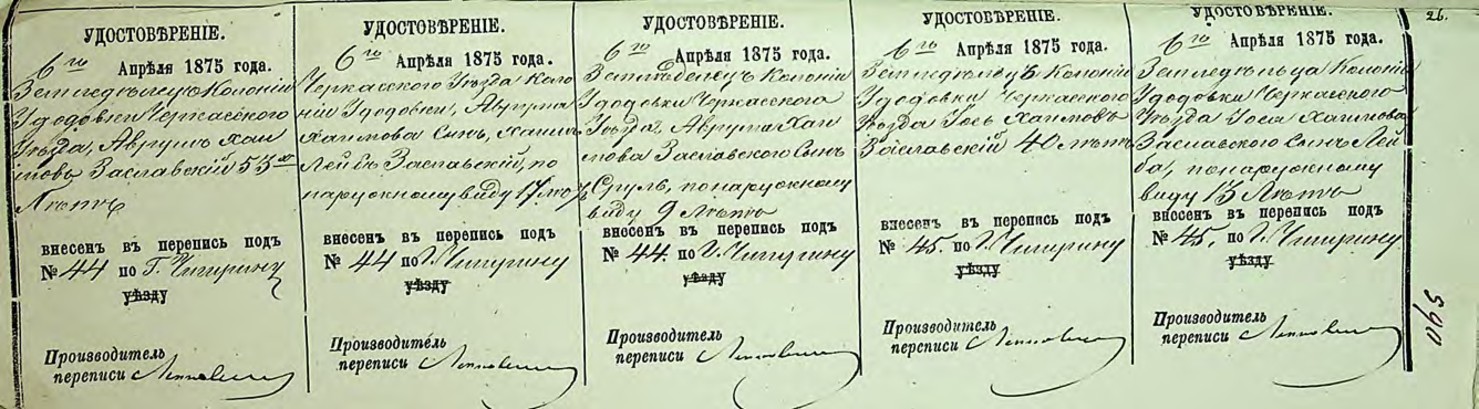 26.
УДОСТОВѢРЕНІЕ.
6го Апрѣля 1875 года.
Земледѣлецъ Колоніи
Удодовки Черкасскаго
Уѣзда, Аврумъ Хаи
мовъ Заславскій 53хъ
Лѣтъ
внесенъ въ перепись подъ
№ 44 по Г. Чигирину
уѣзду
Производитель
переписи
УДОСТОВѢРЕНІЕ.
6го Апрѣля 1875 года.
Черкасскаго Уѣзда Коло
ніи Удодовки, Аврума
Хаимова Сынъ, Хаимъ
Лейбъ Заславскій, по
наружному виду 17 лѣтъ
внесенъ въ перепись подъ
№ 44 по Г. Чигирину
уѣзду
Производитель
переписи
УДОСТОВѢРЕНІЕ.
6го Апрѣля 1875 года.
Земледѣлецъ Колоніи
Удодовки Черкасскаго
Уѣзда, Аврума Хаи
мова Заславскаго Сынъ
Сруль, по наружному
виду 9 Лѣтъ
внесенъ въ перепись подъ
№ 44. по Г. Чигирину
уѣзду
Производитель
переписи
УДОСТОВѢРЕНІЕ.
6го Апрѣля 1875 года.
Земледѣлецъ Колоніи
Удодовки Черкасскаго
Уѣзда Іось Хаимовъ
Заславскій 40 лѣтъ
внесенъ въ перепись подъ
№ 45. по Г. Чигирину
уѣзду
Производитель
переписи
УДОСТОВѢРЕНІЕ.
6го Апрѣля 1875 года.
Земледѣльца Колоніи
Удодовки Черкасскаго
Уѣзда Іося Хаимова
Заславскаго Сынъ Лей
ба, по наружному
виду 13 Лѣтъ
внесенъ въ перепись подъ
№ 45. по Г. Чигирину
уѣзду
Производитель
переписи
590